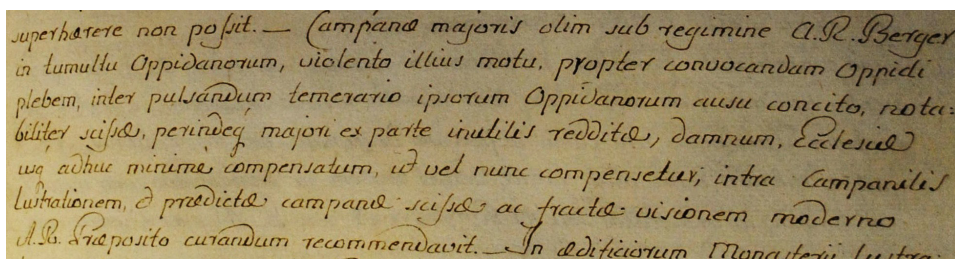 superhærere non possit. — Campanæ majoris olim sub regimine A. R. Berger
in tumultu Oppidanorum, violento illius motu, propter convocandam Oppidi
plebem, inter pulsandum temerario ipsorum Oppidanorum ausu concito, nota=
biliter scissæ, perindeq majori ex parte inutilis redditæ, damnum, Ecclesiæ
usq adhuc minimè compensatum, id vel nunc compensetur, intra Campanilis
lustrationem, & prædictæ campanæ scissæ ac fractæ visionem moderno
A. R. Præposito curandum recommendavit. — In ædificiorum Monasterii lustra=